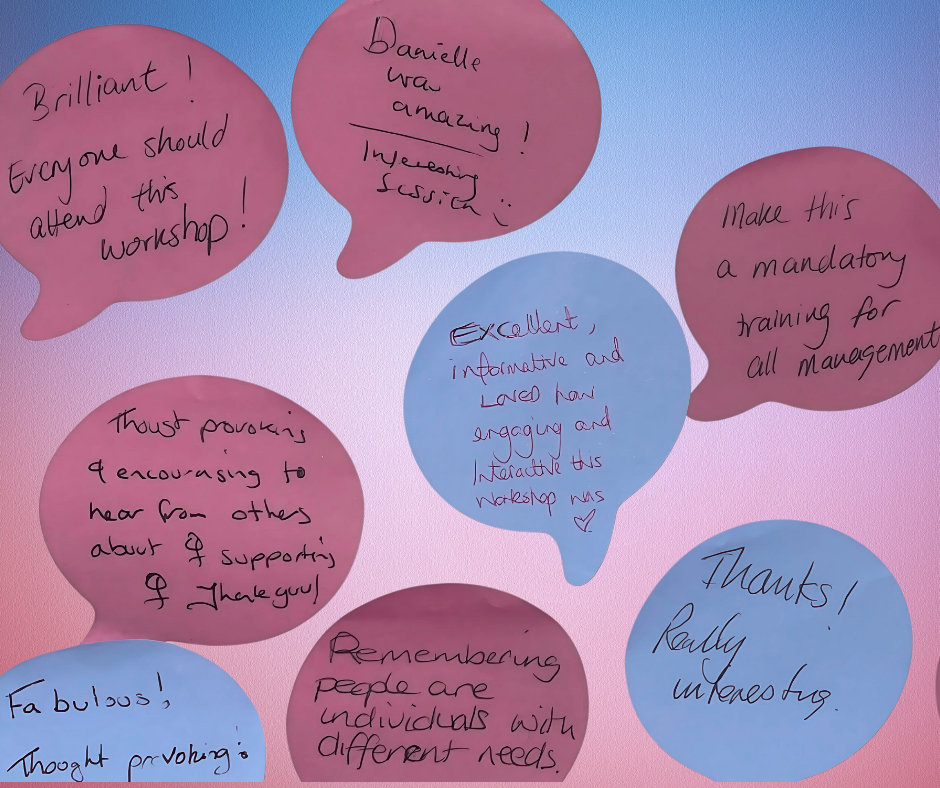 Brilliant!
Everyone should
attend this
workshop!
Danielle
was
amazing!
Interesting
Session :)
Make this
a mandatory
training for
all management
Excellent,
informative and
Loved how
engaging and
Interactive this
Workshop was
♡
Thoust provoking
& encouraging to
hear from others
about ♀ supporting
♀ Thank you!
Fabulous!
Thought provoking:
Remembering
people are
individuals with
different needs.
Thanks!
Really
interesting.